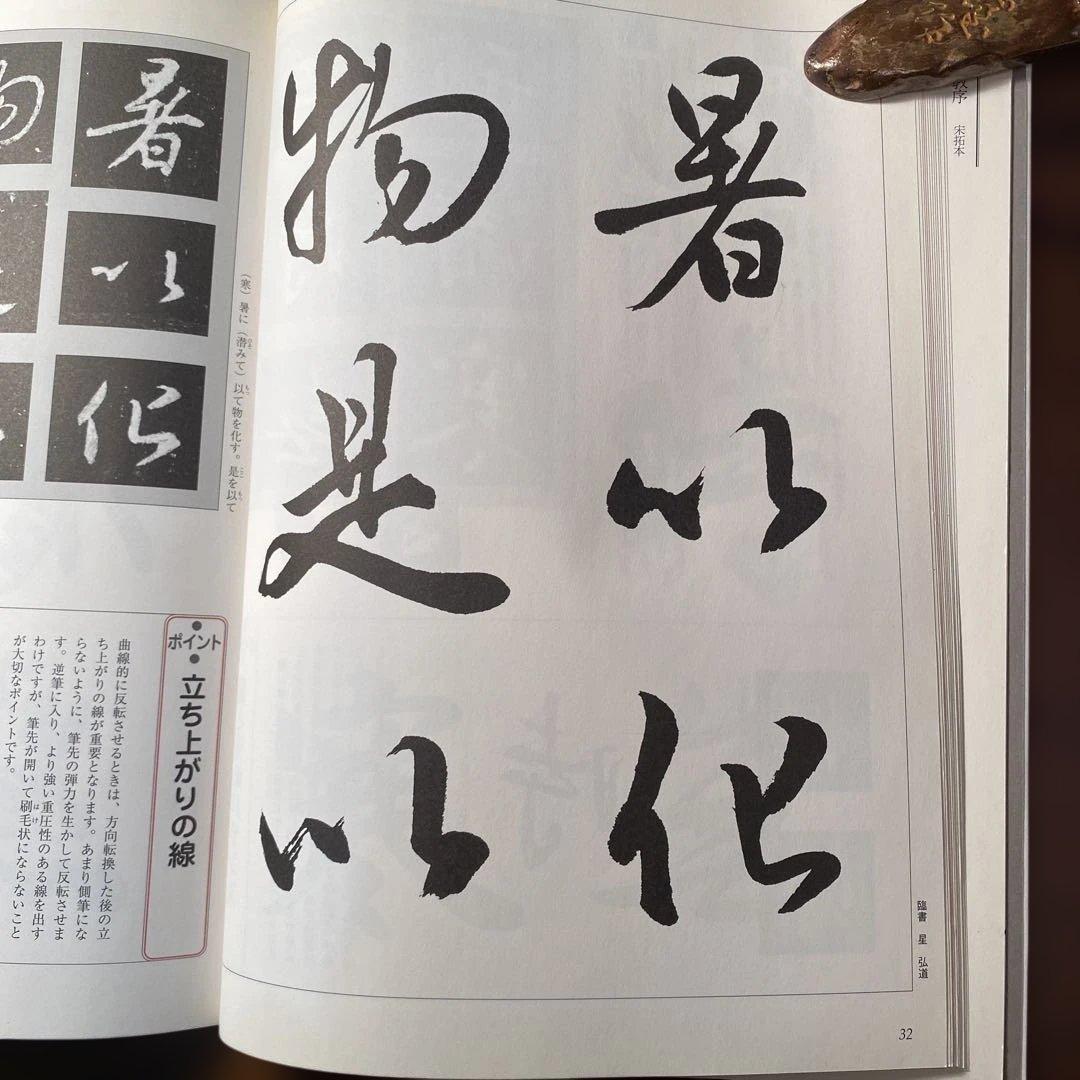 教序 宋拓本
暑以化
物是以
臨書 星 弘道
32
暑
以
化
物
(寒)暑に(潜みて)以て物を化す。是を以て
ポイント
立ち上がりの線
曲線的に反転させるときは、方向転換した後の立
ち上がりの線が重要となります。あまり側筆にな
らないように、筆先の弾力を生かして反転させま
す。逆筆に入り、より強い重圧性のある線を出す
わけですが、筆先が開いて刷毛状にならないこと
が大切なポイントです。